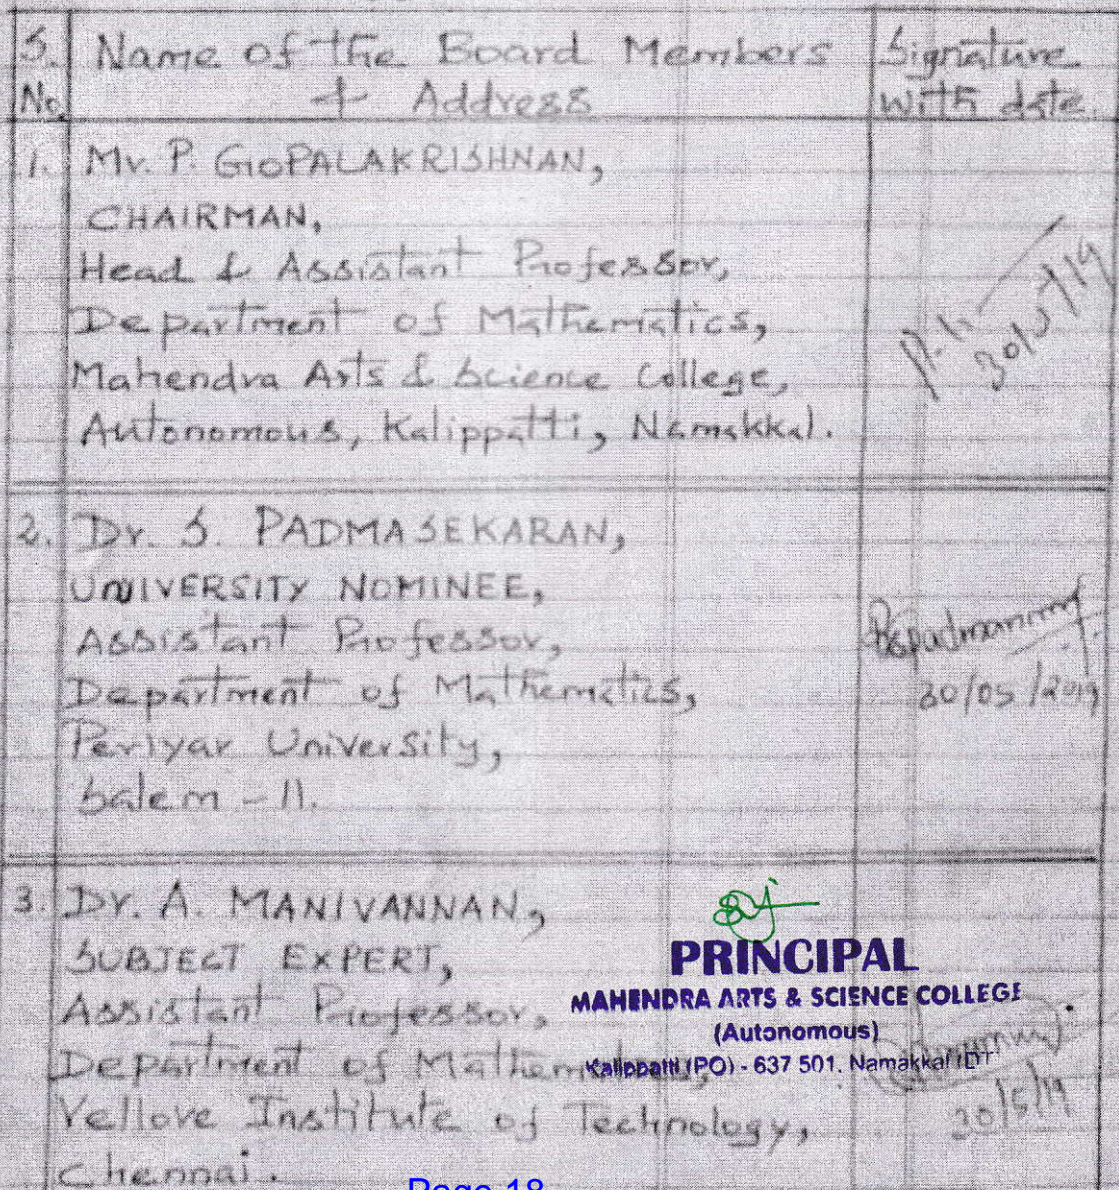 S. No. Name of the Board Members & Address Signature with date.
1. Mr. P. GOPALAKRISHNAN,
CHAIRMAN,
Head & Assistant Professor,
Department of Mathematics,
Mahendra Arts & Science College,
Autonomous, Kalippatti, Namakkal.
30/5/19
2. Dr. S. PADMASEKARAN,
UNIVERSITY NOMINEE,
Assistant Professor,
Department of Mathematics,
Periyar University,
Salem - 11.
30/05/2019
3. Dr. A. MANIVANNAN,
SUBJECT EXPERT,
Assistant Professor,
Department of Mathematics,
Vellore Institute of Technology,
Chennai.
30/5/19
PRINCIPAL
MAHENDRA ARTS & SCIENCE COLLEGE
(Autonomous)
Kalippatti (PO) - 637 501, Namakkal (DT)
Page 18